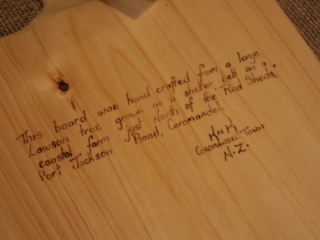 This board was hand crafted from a large
Lawson tree grown as a shelter belt on a
coastal farm just North of the "Red Sheds,"
Port Jackson Road, Coromandel,
K n K
Coromandel Town
N.Z.